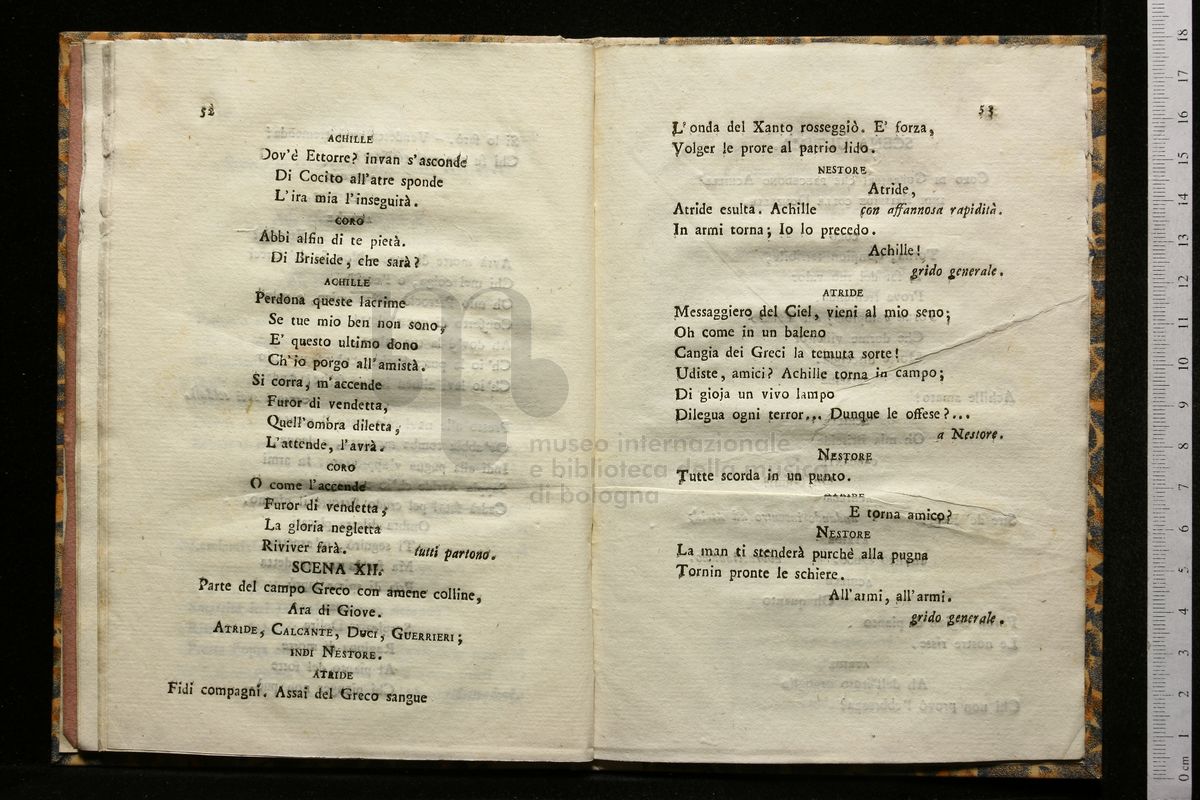 52
ACHILLE
Dov'è Ettorre? invan s'asconde
Di Cocito all'atre sponde
L'ira mia l'inseguirà.
CORO
Abbi alfin di te pietà.
Di Briseide, che sarà?
ACHILLE
Perdona queste lacrime
Se tue mio ben non sono,
E' questo ultimo dono
Ch'io porgo all'amistà.
Si corra, m'accende
Furor di vendetta,
Quell'ombra diletta,
L'attende, l'avrà.
CORO
O come l'accende
Furor di vendetta,
La gloria negletta
Riviver farà. tutti partono.
SCENA XII.
Parte del campo Greco con amene colline,
Ara di Giove.
ATRIDE, CALCANTE, DUCI, GUERRIERI;
INDI NESTORE.
ATRIDE
Fidi compagni. Assai del Greco sangue
53
L'onda del Xanto rosseggiò. E' forza,
Volger le prore al patrio lido.
NESTORE
Atride,
Atride esulta. Achille con affannosa rapidità.
In armi torna; Io lo precedo.
Achille!
grido generale.
ATRIDE
Messaggiero del Ciel, vieni al mio seno;
Oh come in un baleno
Cangia dei Greci la temuta sorte!
Udiste, amici? Achille torna in campo;
Di gioja un vivo lampo
Dilegua ogni terror... Dunque le offese?...
a Nestore.
NESTORE
Tutte scorda in un punto.
E torna amico?
NESTORE
La man ti stenderà purchè alla pugna
Tornin pronte le schiere.
All'armi, all'armi.
grido generale.
museo internazionale
e biblioteca della musica
di bologna
0 cm 1 2 3 4 5 6 7 8 9 10 11 12 13 14 15 16 17 18